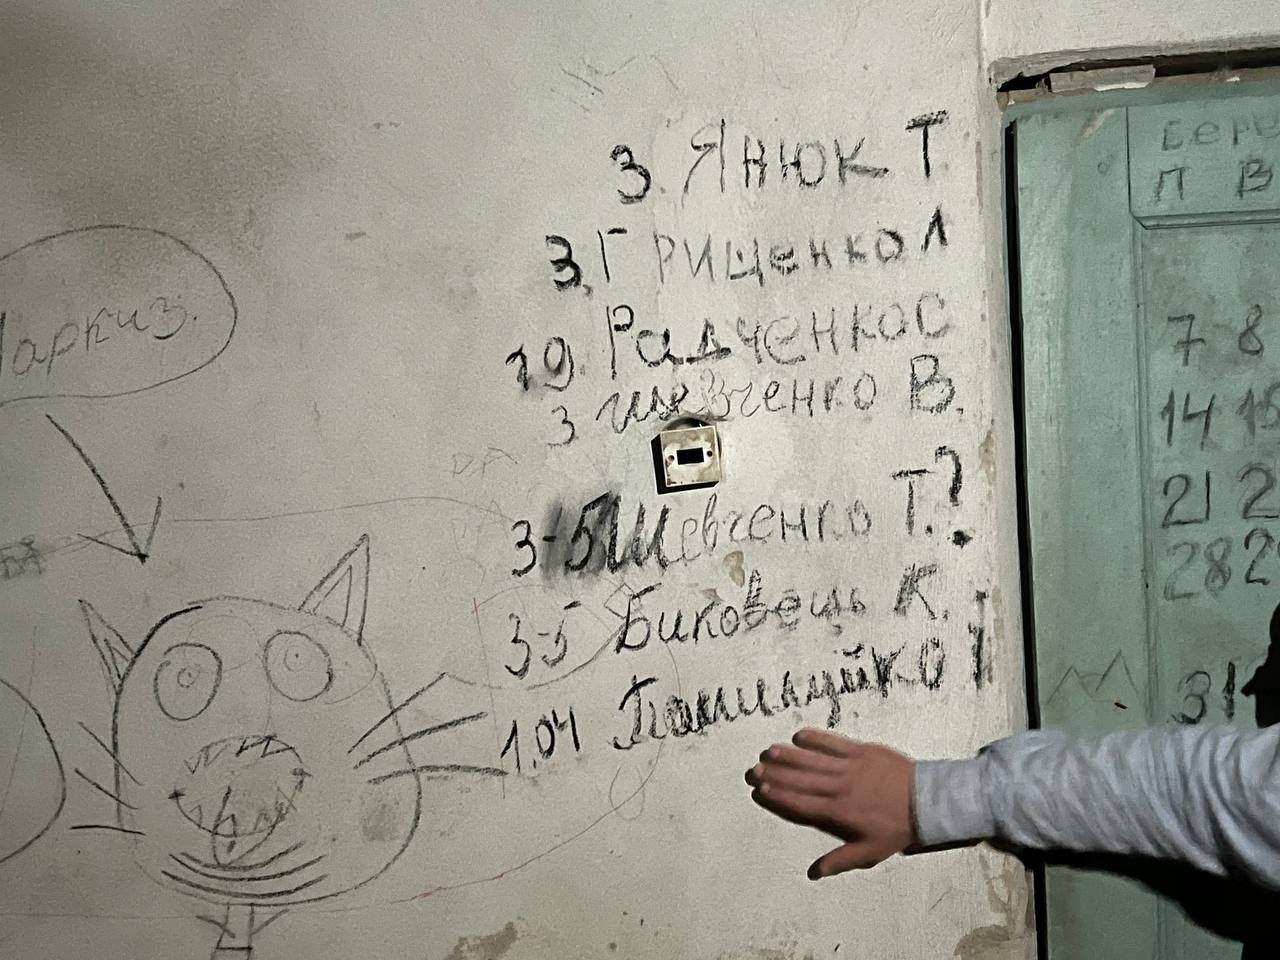 3. Янюк Т.
3. Грищенко Л
19. Радченко С
3 Шевченко В.
3-5 Шевченко Т.?
3-5 Биковець К.
1.04
Маркиз.
П В
7 8
14 15
21 2
28 2
31